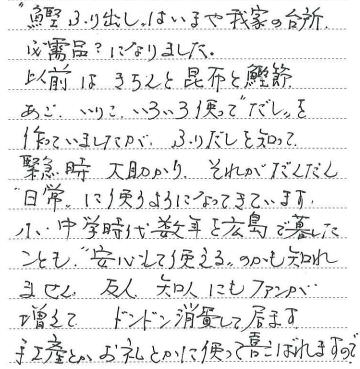 "鰹ふり出し"はいまや我家の台所
必需品?になりました。
以前はきちんと昆布と鰹節
あご、いりこ、いろいろ使って"だし"を
作っていましたが、ふりだしを知って
緊急時 大助かり、それがだんだん
"日常"に使うようになってきています。
小・中学時代数年を広島で暮した
ことも、"安心して使える"のかも知れ
ません 友人 知人にもファンが
増えて ドンドン消費して居ます
手土産とか お礼とかに使って喜こばれますので